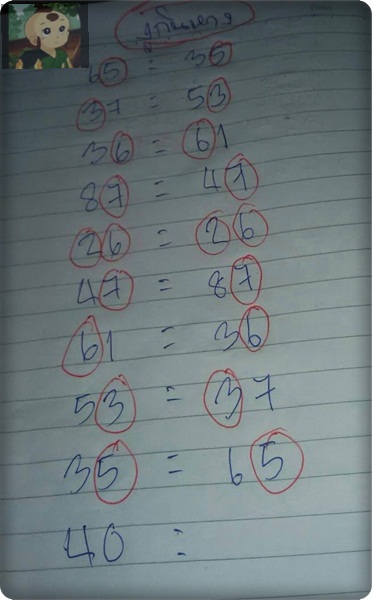 งูกินหาง
65 = 35
37 = 53
36 = 61
87 = 47
26 = 26
47 = 87
61 = 36
53 = 37
35 = 65
40 =